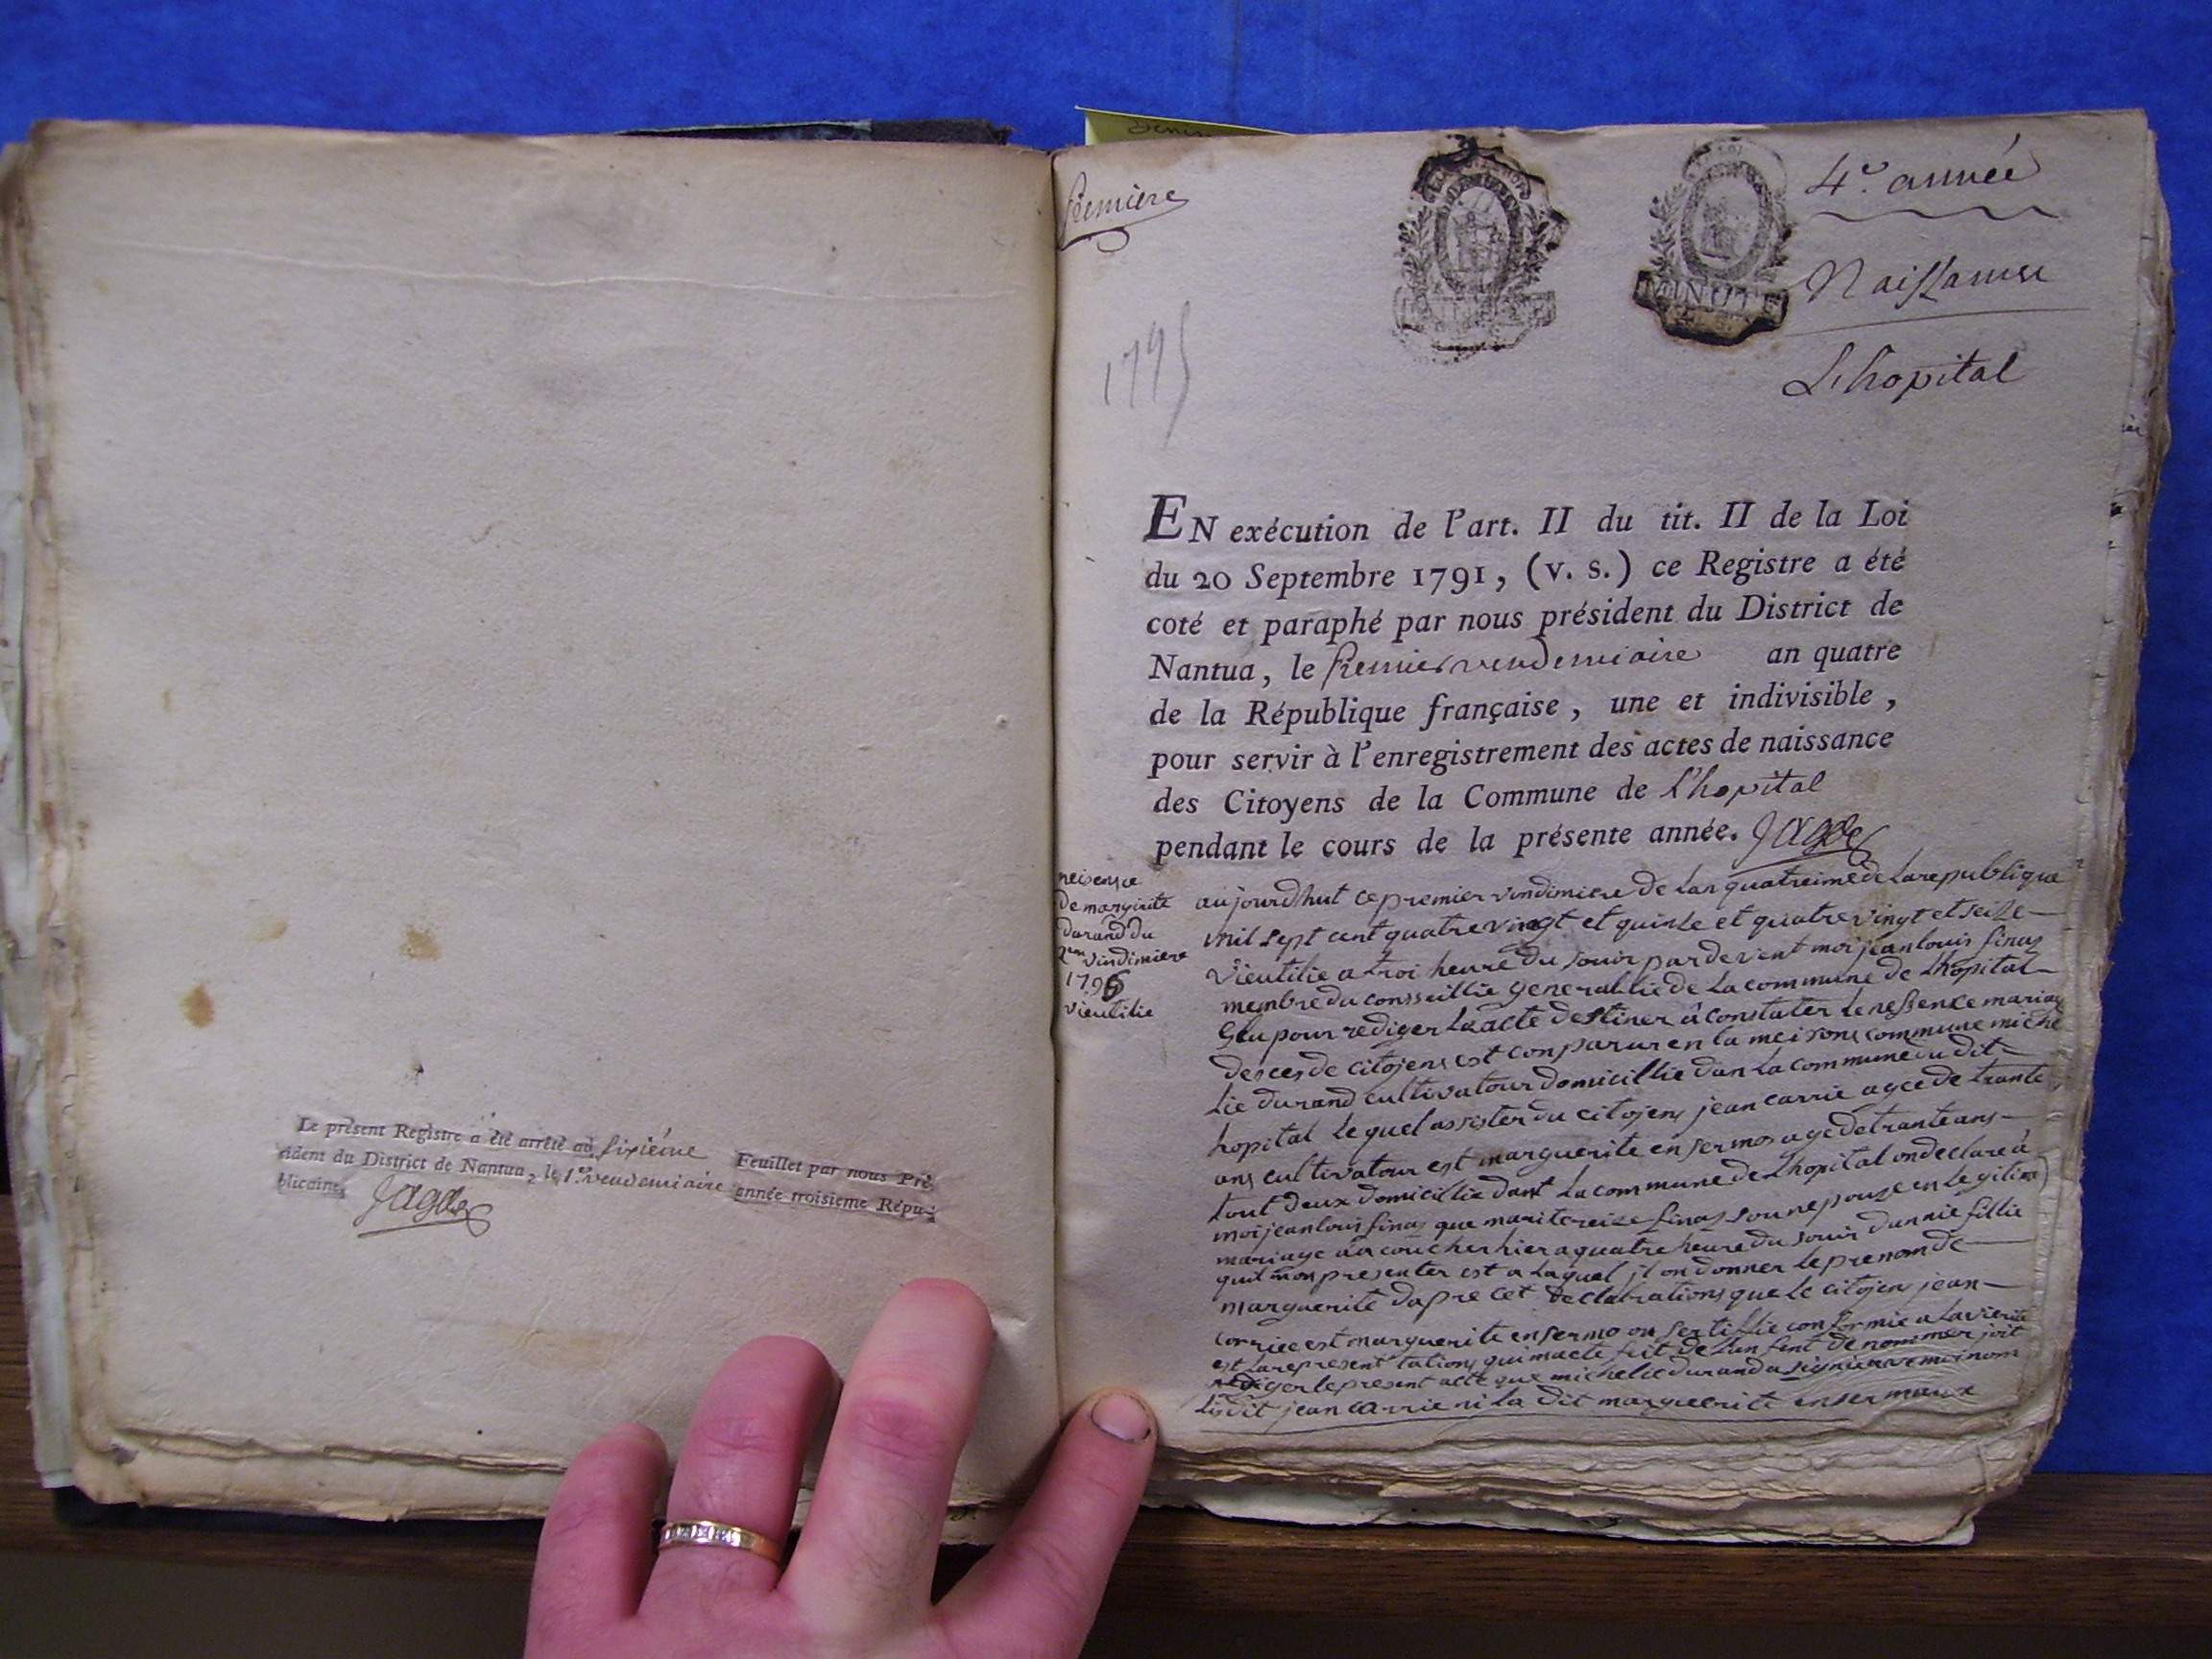 Le présent Registre a été arrêté au sixiéme Feuillet par nous Pré-
sident du District de Nantua, le 1.er vendemiaire année troisieme Répu-
blicaine.
Première
4.e année
Naissance
L'hopital
MINUTE
1795
EN exécution de l'art. II du tit. II de la Loi
du 20 Septembre 1791, (v. s.) ce Registre a été
coté et paraphé par nous président du District de
Nantua, le premier vendemiaire an quatre
de la République française, une et indivisible,
pour servir à l'enregistrement des actes de naissance
des Citoyens de la Commune de L'hopital
pendant le cours de la présente année.
neisense
de margirite
durand du
vindimiere
1796
vieutilie
aujourdhut ce premier vindimiere de lan quatreime de La republique
mil sept cent quatre vingt et quinze et quatre vingt et seize
vieutilie a troi heure du souir pardevent moi jean louis finas
membre du consseillie generallie de La commune de Lhopital
Elu pour rediger La acte destiner a constater Le nessence mariag
desces de citojens est conparur en la meisons commune miche
Lie durand cultivatour domicillie dan La commune du dit
hopital Le quel assister du citojens jean carrie agee de trante
ans cultivatour est marguerite ensermos age de trante ans
tout deux domicillie dant La commune de Lhopital on declare a
moi jean louis finas que mari tereize finas soune pouze en Legitime
mariage a a coucher hier a quatre heure du souir dunnie fillie
quil mon presenter est a Laquel jl on donner Le prenom de
marguerite dapre cet declarations que Le citojen jean
corriee est marguerite ensermo on sertiffie conformie a La vierite
est La represent tations qui ma ete fait de Lenfent denommer jeit
rediger Le present acte que michelie durand a signier avec moi nom
Lidit jean carrie ni La dit marguerite ensermaux